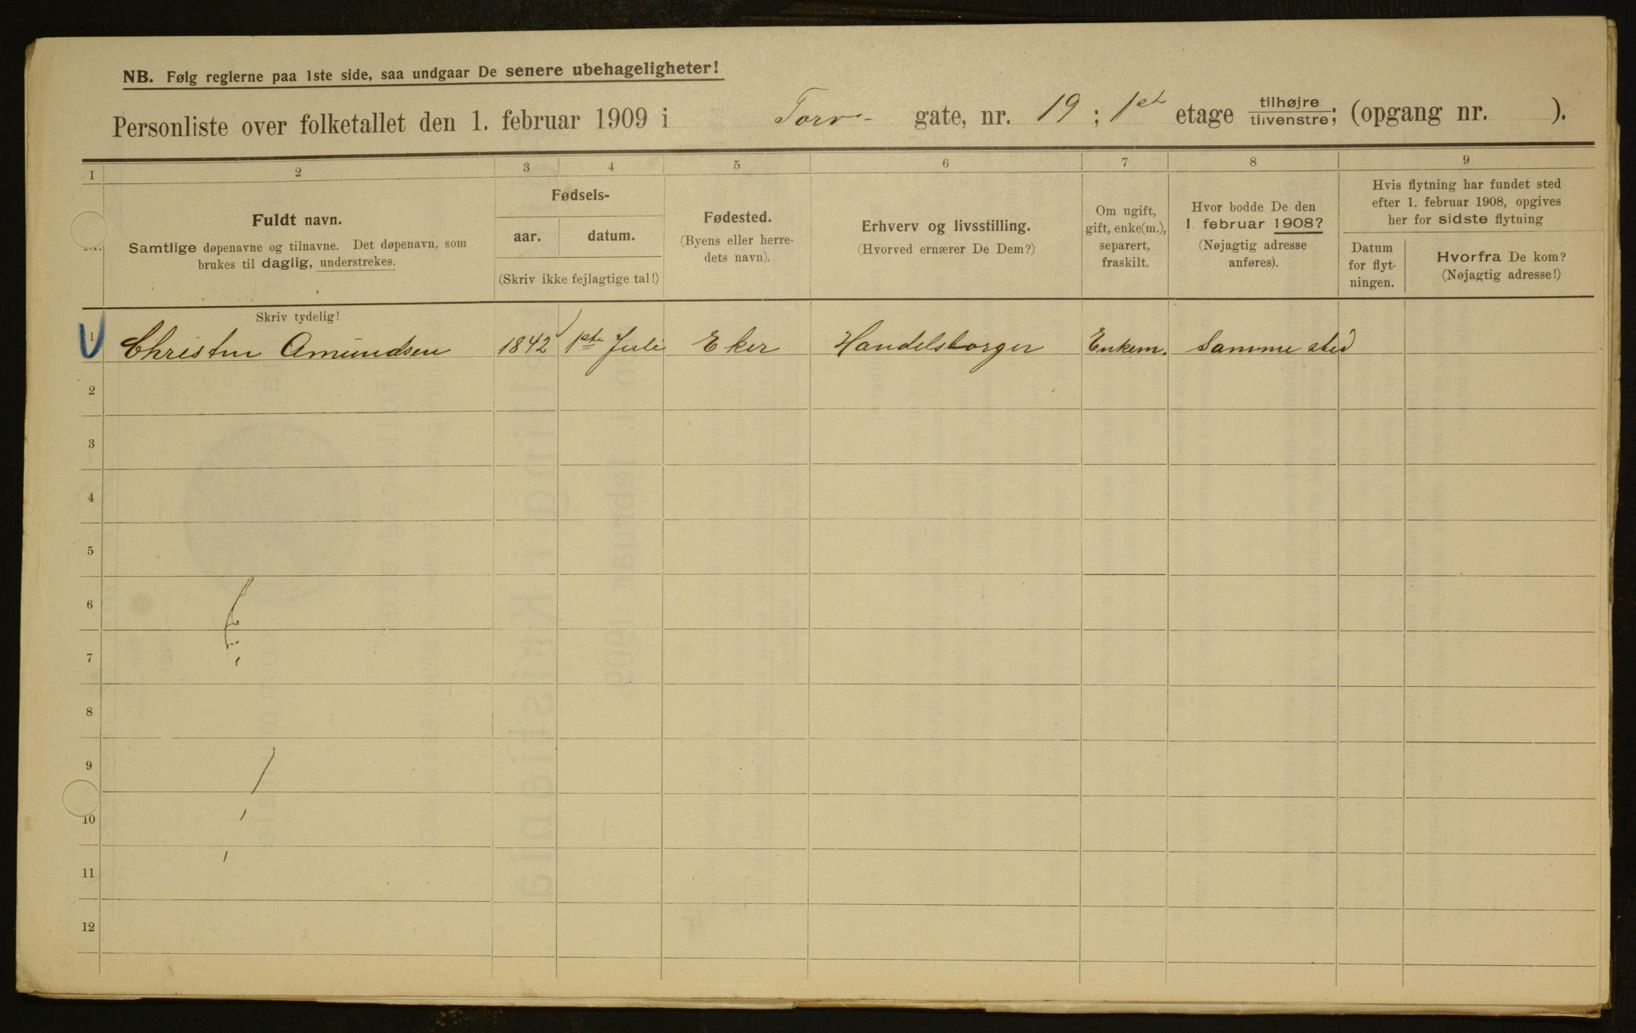 NB. Følg reglerne paa 1ste side, saa undgaar De senere ubehageligheter!
Personliste over folketallet den 1. februar 1909 i Torv- gate, nr. 19 ; 1st etage tilhøjre tilvenstre; (opgang nr. ).
1 2 3 4 5 6 7 8 9
Fuldt navn.
Samtlige døpenavne og tilnavne. Det døpenavn, som
brukes til daglig, understrekes.
Skriv tydelig!
Fødsels-
aar. datum.
(Skriv ikke fejlagtige tal!)
Fødested.
(Byens eller herre-
dets navn).
Erhverv og livsstilling.
(Hvorved ernærer De Dem?)
Om ugift,
gift, enke(m.),
separert,
fraskilt.
Hvor bodde De den
1 februar 1908?
(Nøjagtig adresse
anføres).
Hvis flytning har fundet sted
efter 1. februar 1908, opgives
her for sidste flytning
Datum
for flyt-
ningen.
Hvorfra De kom?
(Nøjagtig adresse!)
1 Amundsen 1842 1ste Juli Eker Handelsborger Enkem. Samme sted
2
3
4
5
6
7
8
9
10
11
12